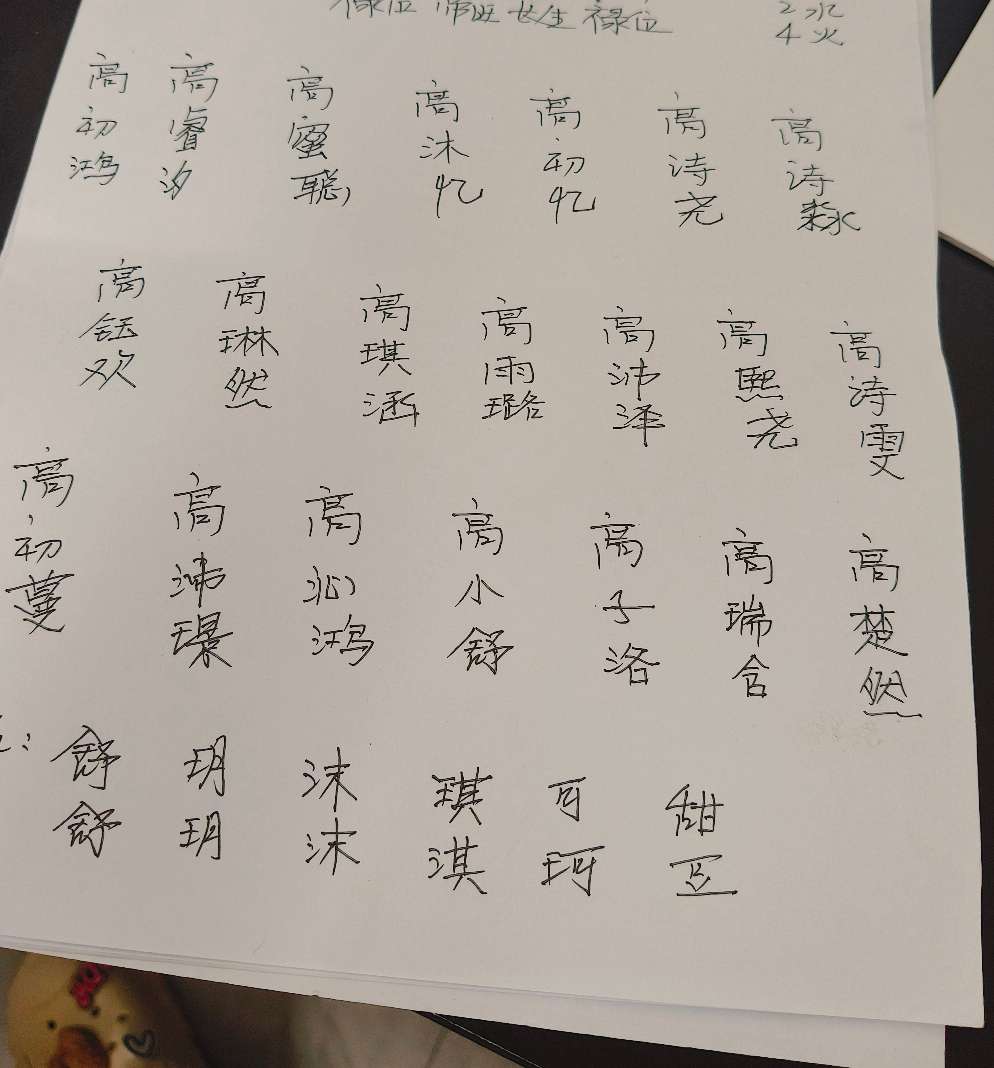 禄位 帝旺 长生 禄位
2水
4火
高初鸿
高睿汐
高蜜聪
高沐忆
高初忆
高诗尧
高诗淼
高钰欢
高琳然
高琪涵
高雨璐
高沛泽
高熙尧
高诗雯
高初蔓
高沛璟
高沁鸿
高小舒
高子洛
高瑞含
高楚然
舒舒
玥玥
沫沫
琪淇
可珂
甜豆